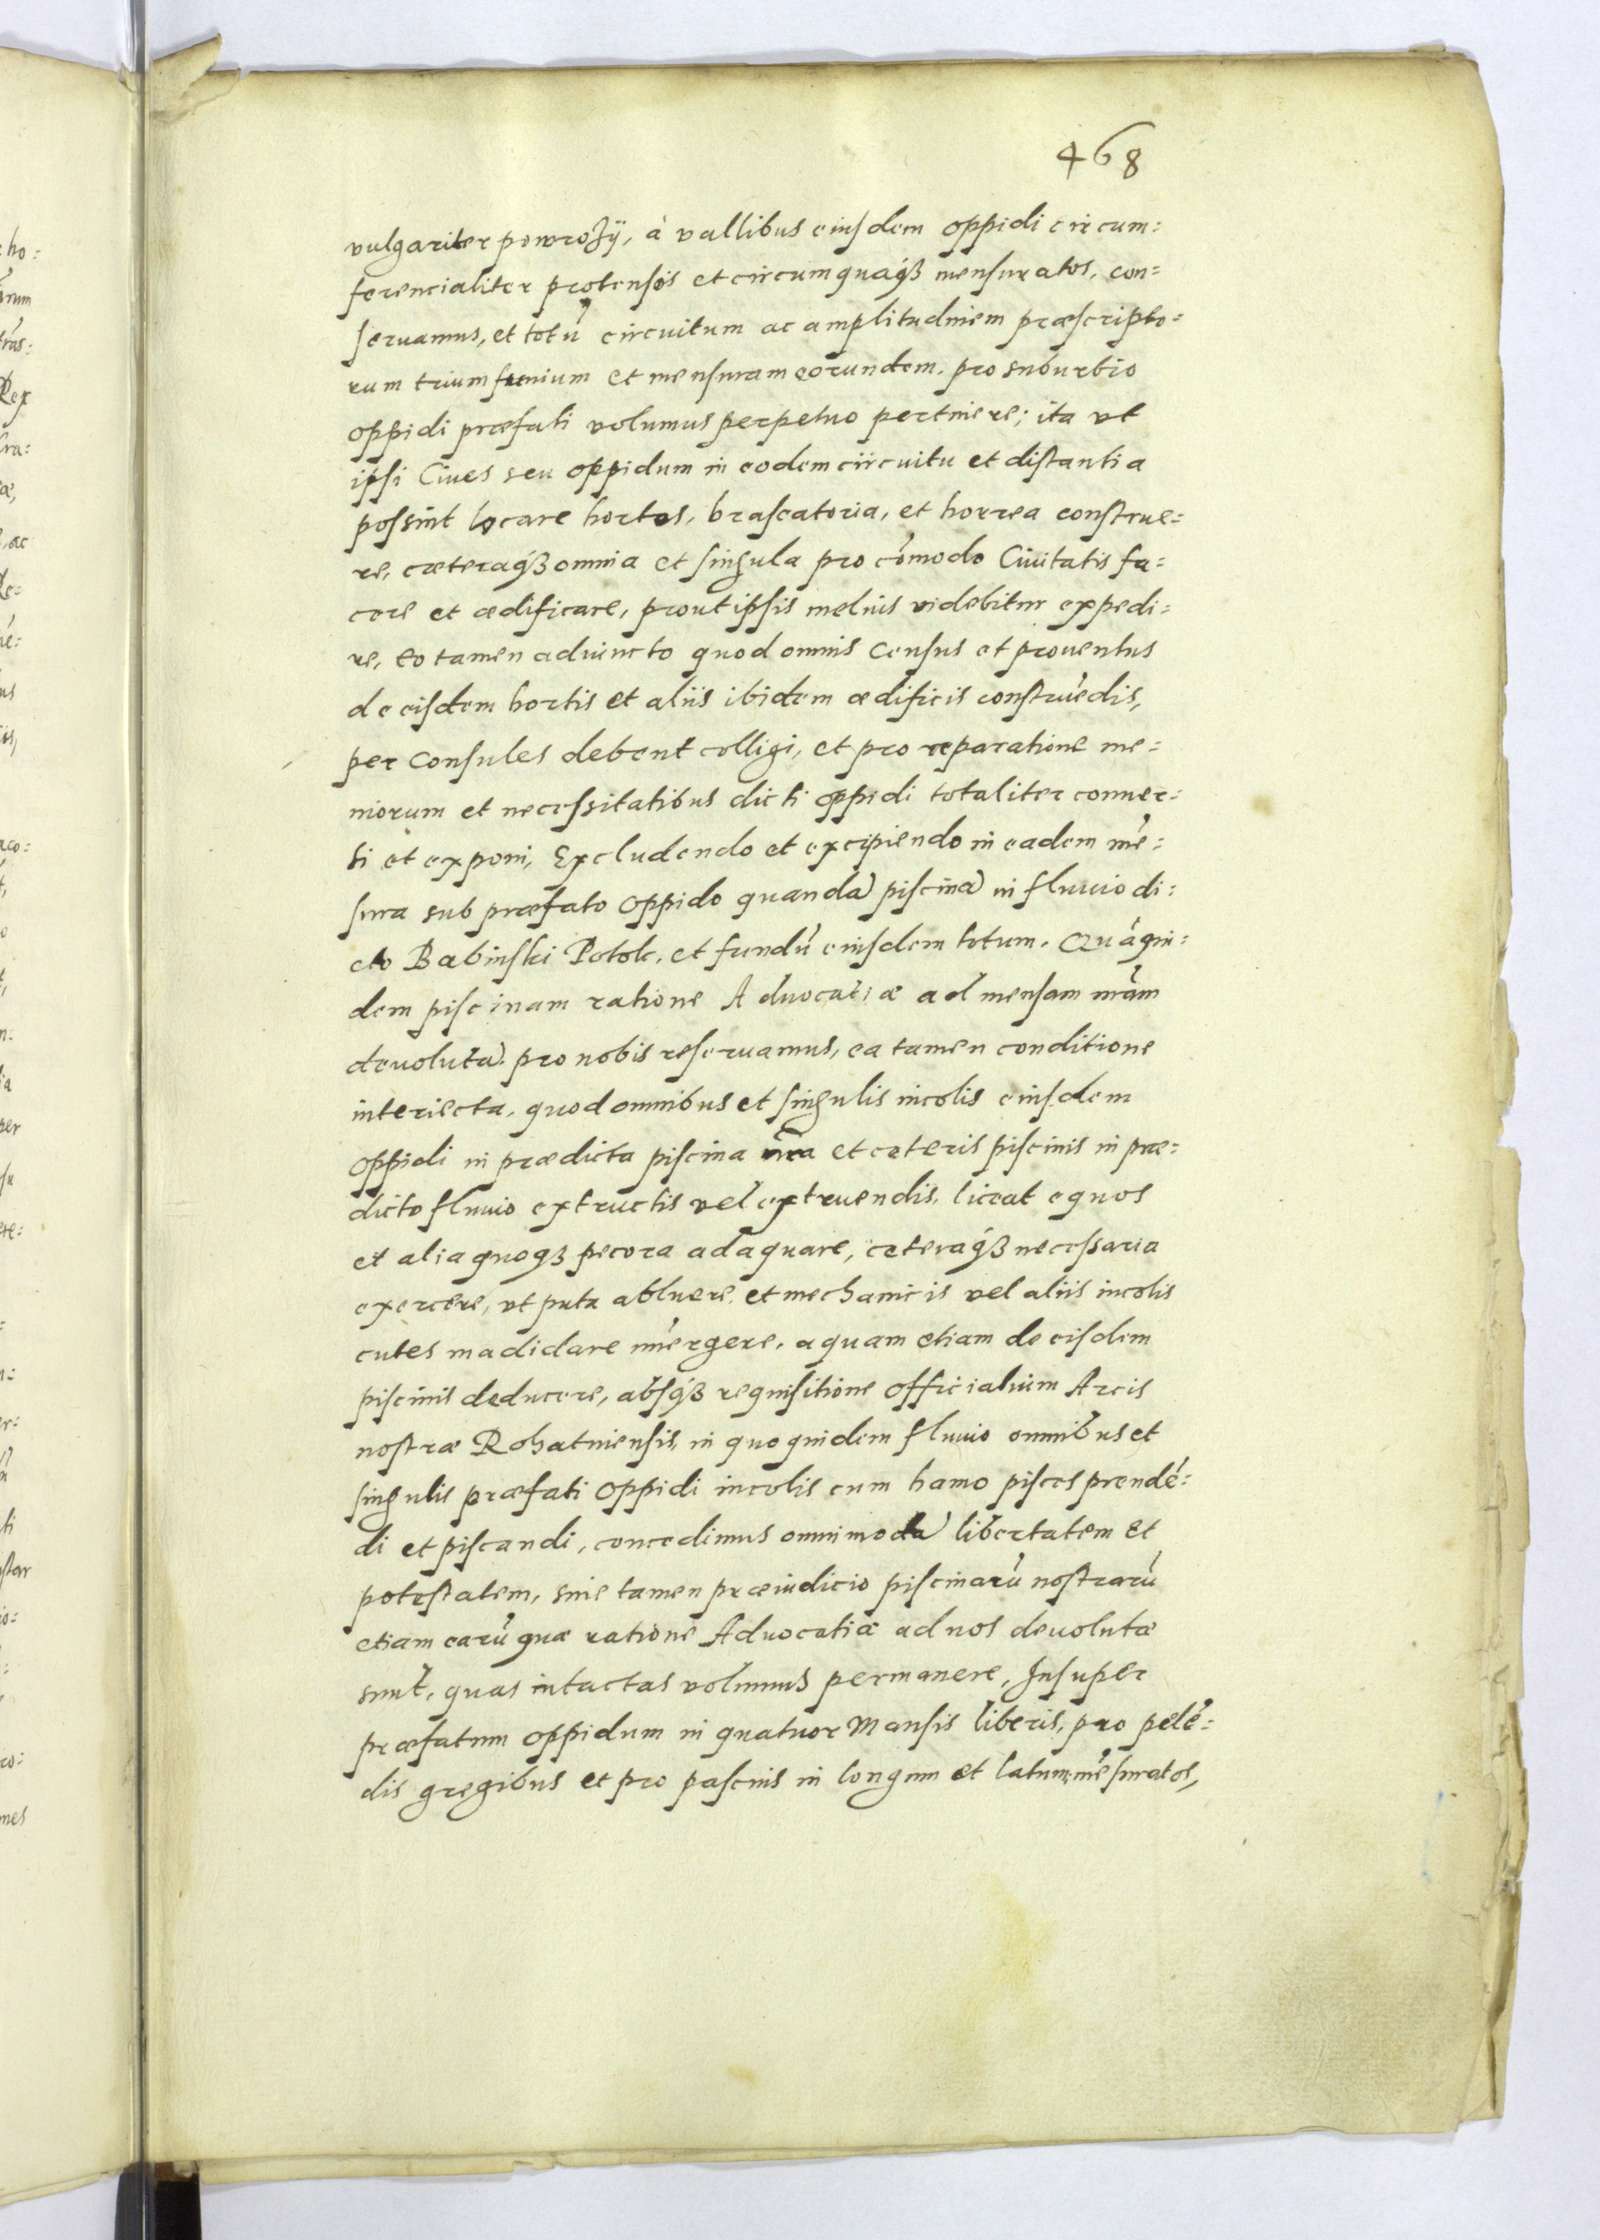 468
vulgariter powrozÿ, à vallibus eiusdem oppidi circum:
ferencialiter protensos et circumquaq́ꝫ mensuratos, con:
seruamus, et totū circuitum ac amplitudinem præscripto:
rum trium funium et mensuram eorundem. pro suburbio
oppidi præfati volumus perpetuo pertinere; ita vt
ipsi Ciues seu oppidum in eodem circuitu et distantia
possint locare hortos, brascatoria, et horrea construe:
re, cæteraq́ꝫ omnia et singula pro cōmodo Ciuitatis fa:
cere et ædificare, prout ipsis melius videbitur expedi:
re, eo tamen adiuncto quod omnis census et prouentus
de eisdem hortis et aliis ibidem ædificis construēdis,
per Consules debent colligi, et pro reparatione me:
niorum et necessitatibus dicti oppidi totaliter conuer:
ti et exponi, Excludendo et excipiendo in eadem mē:
sura sub præfato oppido quandā piscinā in fluuio di:
cto Babinski Potok, et fundū eiusdem totum. Quāqui:
dem piscinam ratione Aduocatiæ ad mensam nrām
deuolutā. pro nobis reseruamus, ea tamen conditione
interiecta, quod omnibus et singulis incolis eiusdem
oppidi in prædicta piscina nrā et cæteris piscinis in præ:
dicto fluuio extructis vel extruendis, liceat equos
et alia quoqꝫ pecora adaquare, cæteraq́ꝫ necessaria
exercere, vt puta abluere, et mechanicis vel aliis incolis
cutes madidare īmergere, aquam etiam de eisdem
piscinis deducere, absq́ꝫ requisitione officialium Arcis
nostræ Rohatinensis, in quo quidem fluuio omnibus et
singulis præfati oppidi incolis cum hamo pisces prendē:
di et piscandi, concedimus omnimodā libertatem et
potestatem, sine tamen præiudicio piscinarū nostrarū
etiam earū quæ ratione Aduocatiæ ad nos deuolutæ
sunt, quas intactas volumus permanere, Insuper
præfatum oppidum in quatuor Mansis liberis, pro pelē:
dis gregibus et pro pascuis in longum et latum mēsuratos,